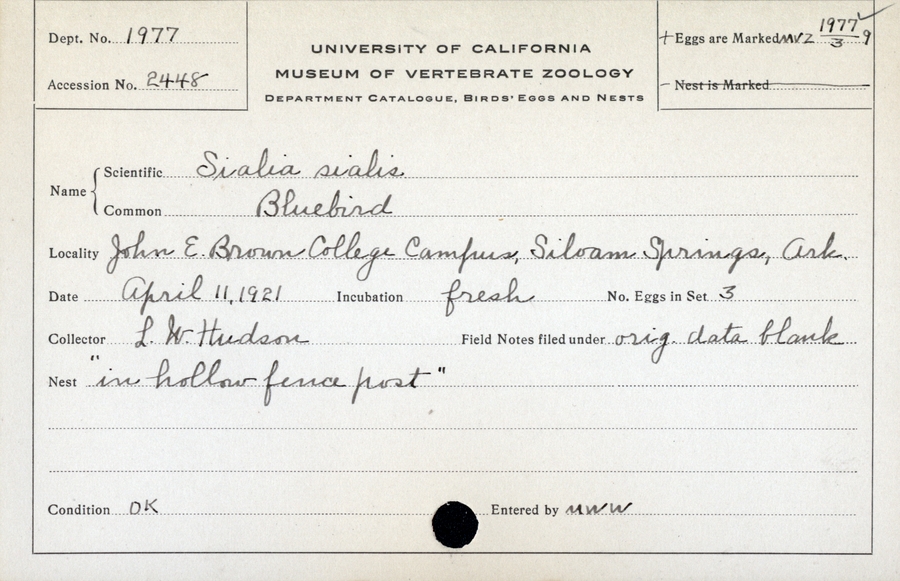 Dept. No. 1977
Accession No. 2448
UNIVERSITY OF CALIFORNIA
MUSEUM OF VERTEBRATE ZOOLOGY
DEPARTMENT CATALOGUE, BIRDS' EGGS AND NESTS
+ Eggs are Marked MVZ 1977/3 9
- Nest is Marked
Name
Scientific Sialia sialis
Common Bluebird
Locality John E. Brown College Campus, Siloam Springs, Ark.
Date April 11, 1921 Incubation fresh No. Eggs in Set 3
Collector L. W. Hudson Field Notes filed under orig. data blank
Nest "in hollow fence post"
Condition OK Entered by